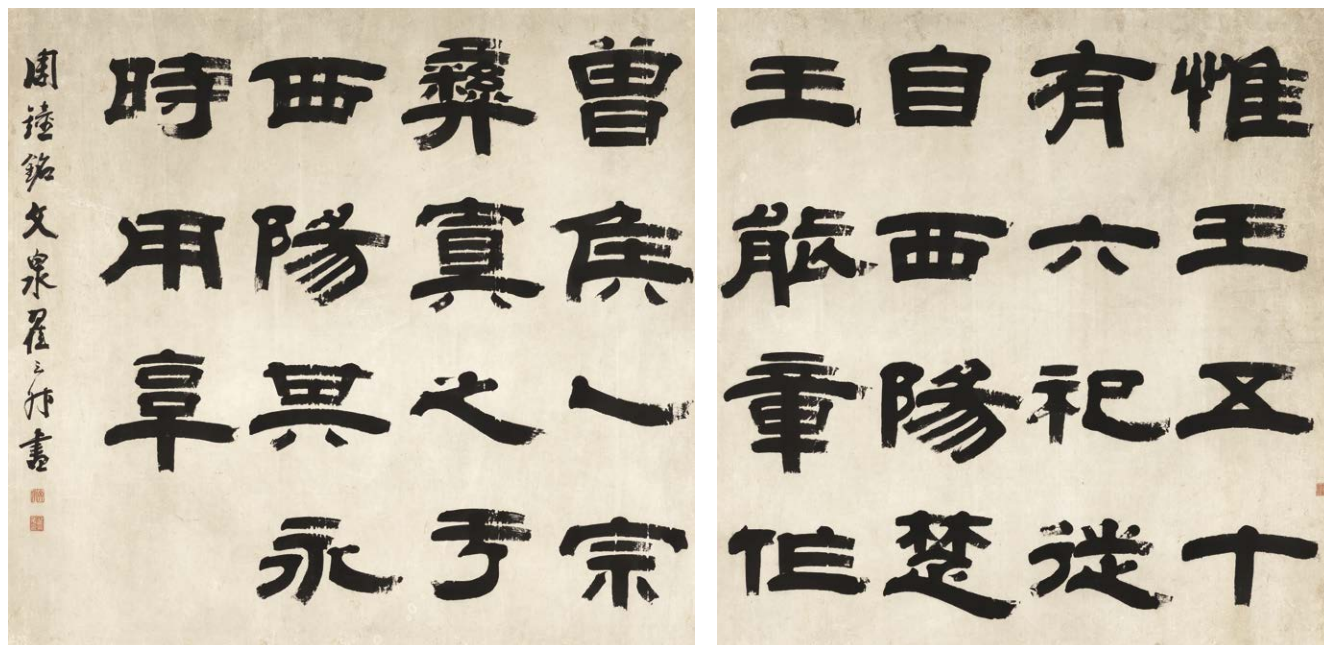 惟王五十
有六祀徙
自西陽楚
王能章作
曾侯乙宗
彝寘之于
西陽其永
時用享
周鐘銘 文泉翟云升書